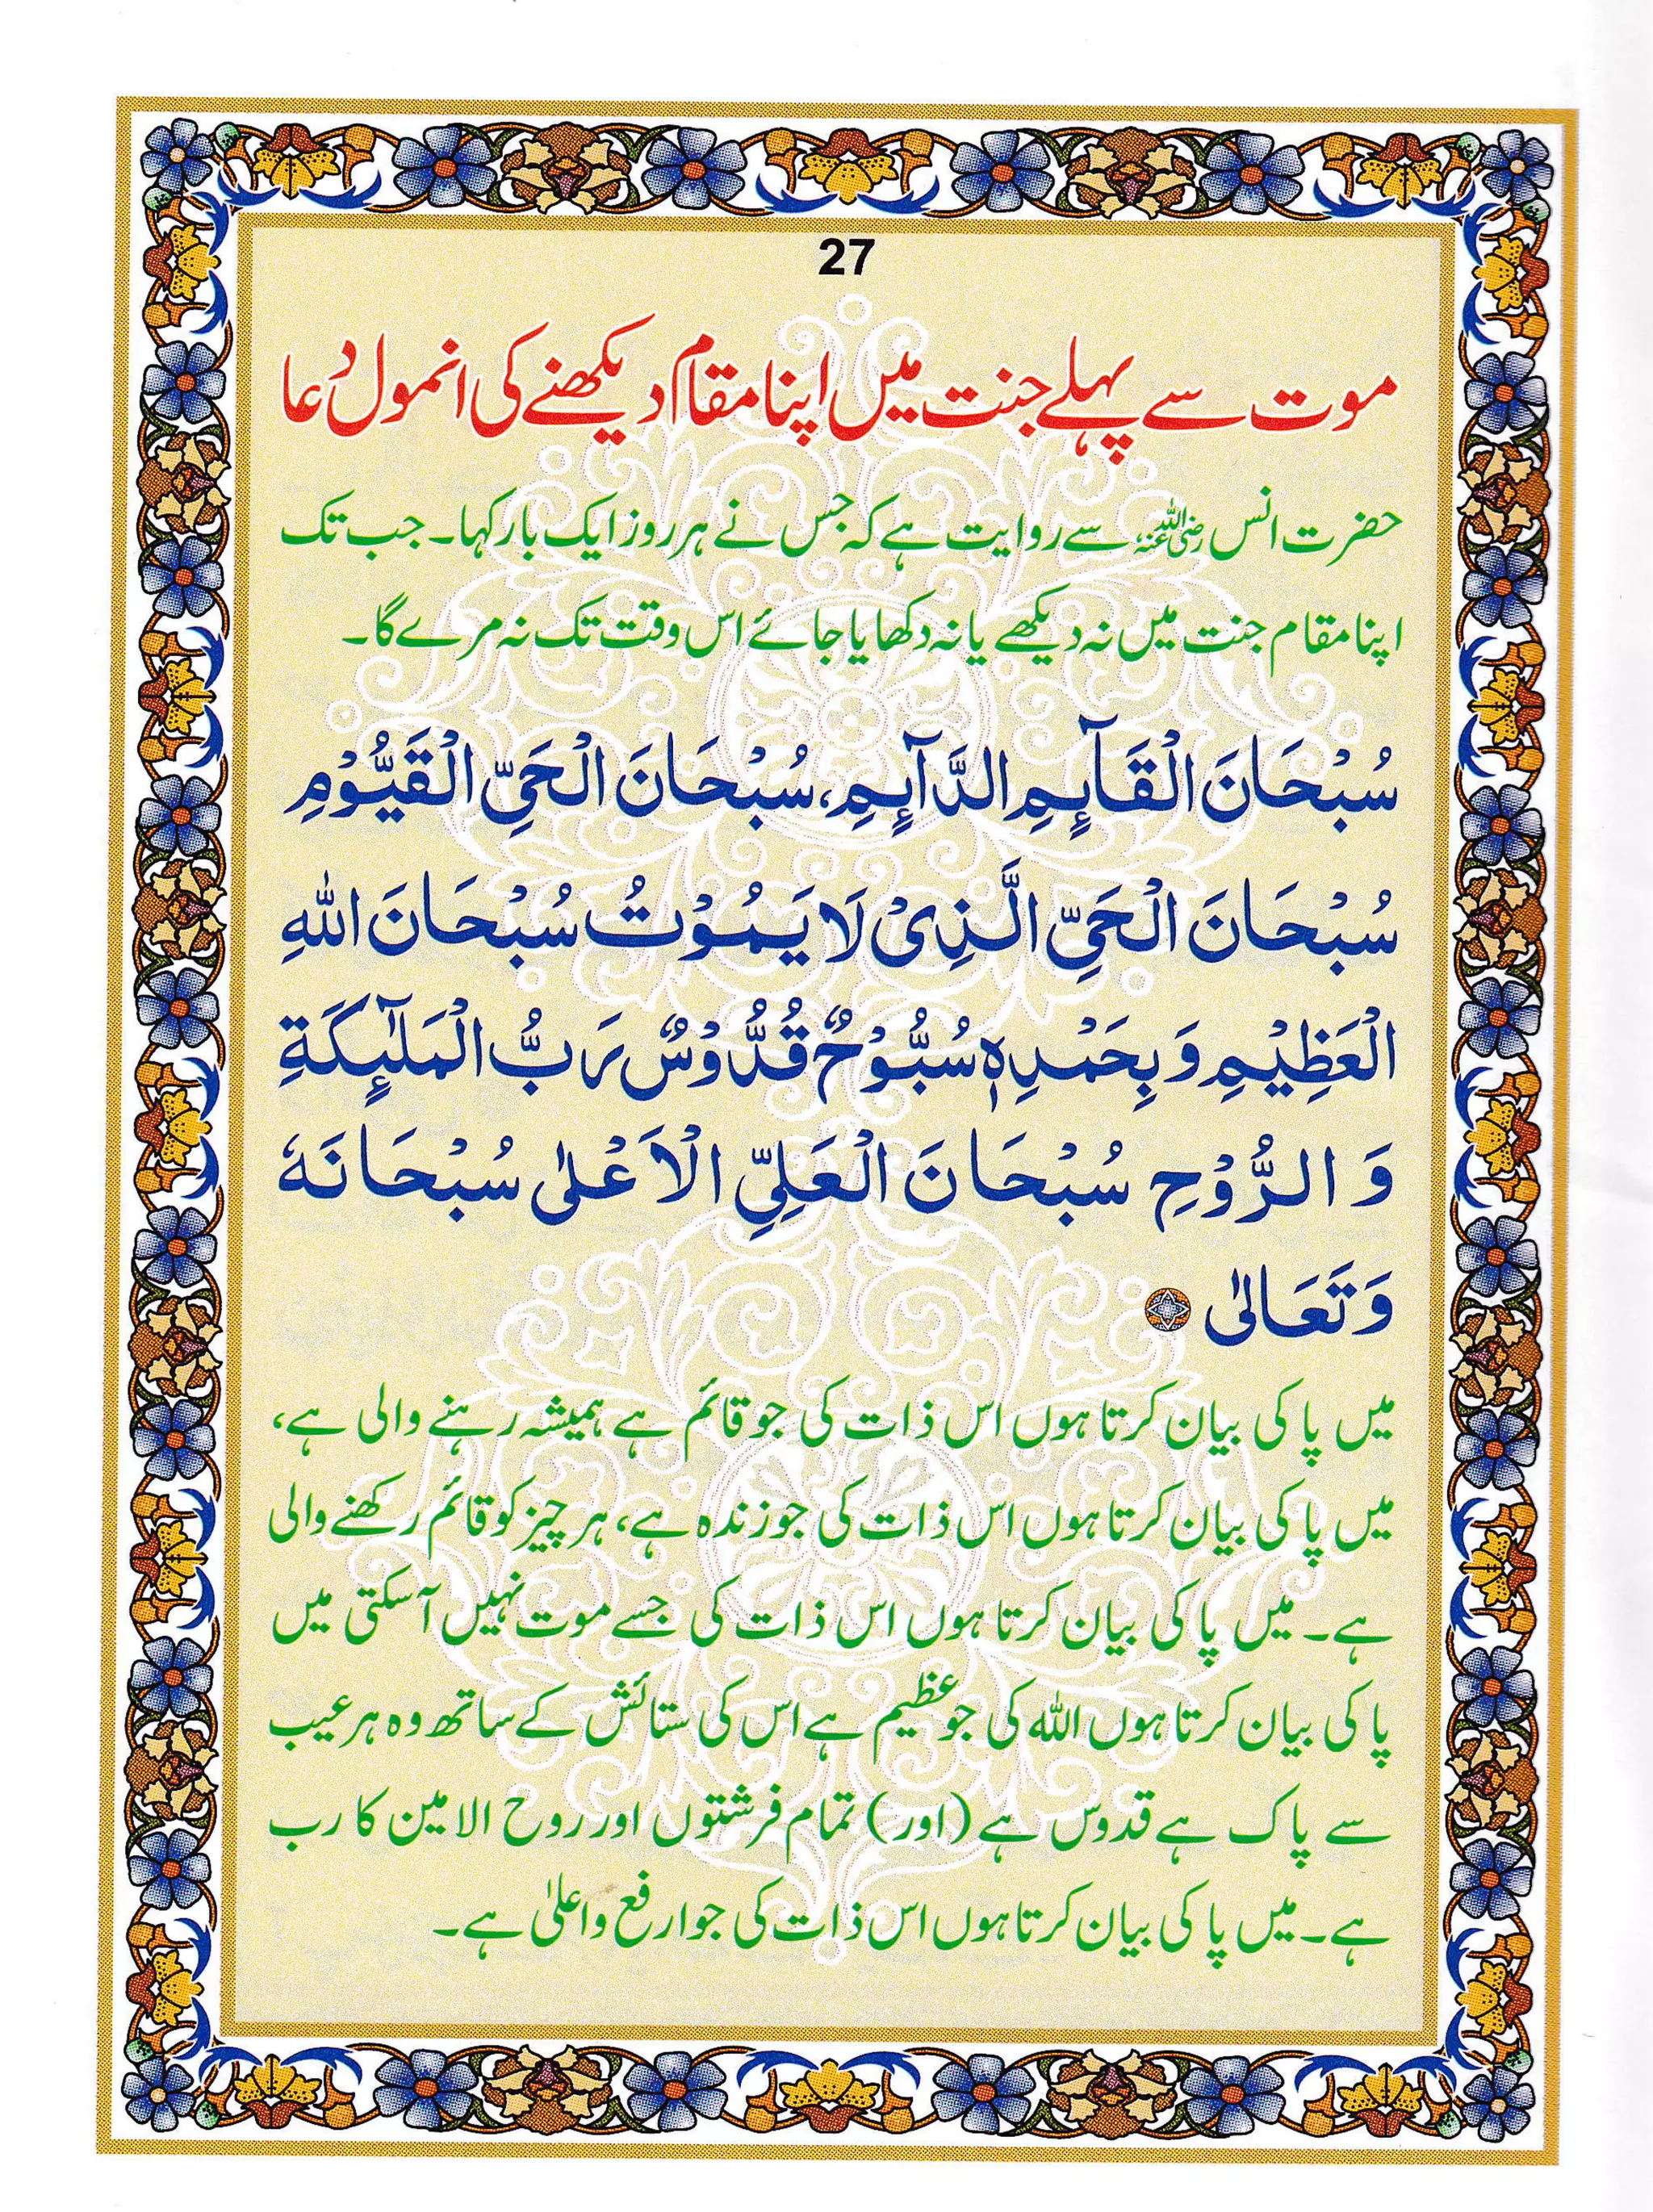 27
موت سے پہلے جنت میں اپنا مقام دیکھنے کی انمول دعا
حضرت انس رضی اللہ عنہ سے روایت ہے کہ جس نے ہر روز ایک بار کہا۔ جب تک
اپنا مقام جنت میں نہ دیکھے یا نہ دکھایا جائے اس وقت تک نہ مرے گا۔
سُبْحَانَ الْقَآئِمِ الدَّآئِمِ، سُبْحَانَ الْحَیِّ الْقَیُّوْمِ
سُبْحَانَ الْحَیِّ الَّذِیْ لَا یَمُوْتُ سُبْحَانَ اللّٰهِ
الْعَظِیْمِ وَ بِحَمْدِهٖ سُبُّوْحٌ قُدُّوْسٌ رَبُّ الْمَلٰٓئِکَةِ
وَ الرُّوْحِ سُبْحَانَ الْعَلِیِّ الْاَعْلٰی سُبْحَانَهٗ
وَتَعَالٰی
میں پاکی بیان کرتا ہوں اس ذات کی جو قائم ہے ہمیشہ رہنے والی ہے،
میں پاکی بیان کرتا ہوں اس ذات کی جو زندہ ہے، ہر چیز کو قائم رکھنے والی
ہے۔ میں پاکی بیان کرتا ہوں اس ذات کی جسے موت نہیں آسکتی میں
پاکی بیان کرتا ہوں اللہ کی جو عظیم ہے اس کی ستائش کے ساتھ وہ ہر عیب
سے پاک ہے قدوس ہے (اور) تمام فرشتوں اور روح الامین کا رب
ہے۔ میں پاکی بیان کرتا ہوں اس ذات کی جو ارفع و اعلیٰ ہے۔